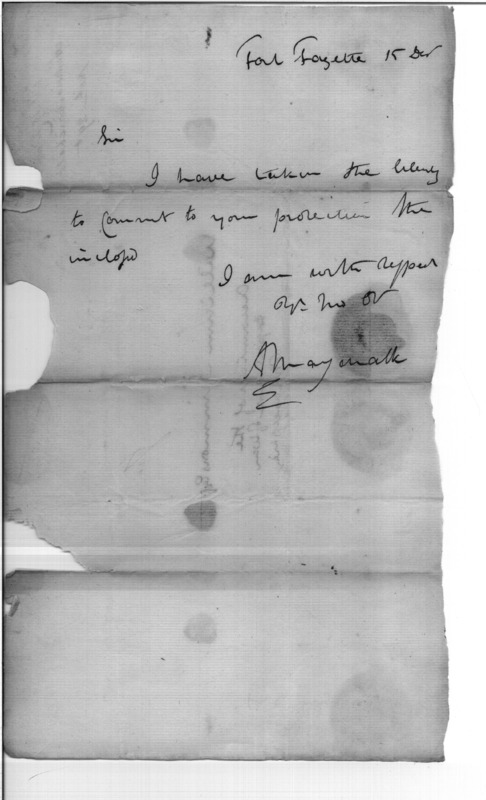 Fort Fayette 15 Decr
Sir
I have taken the liberty
to Commit to your protection the
inclosd
I am with respect
Yr. Mo Ob